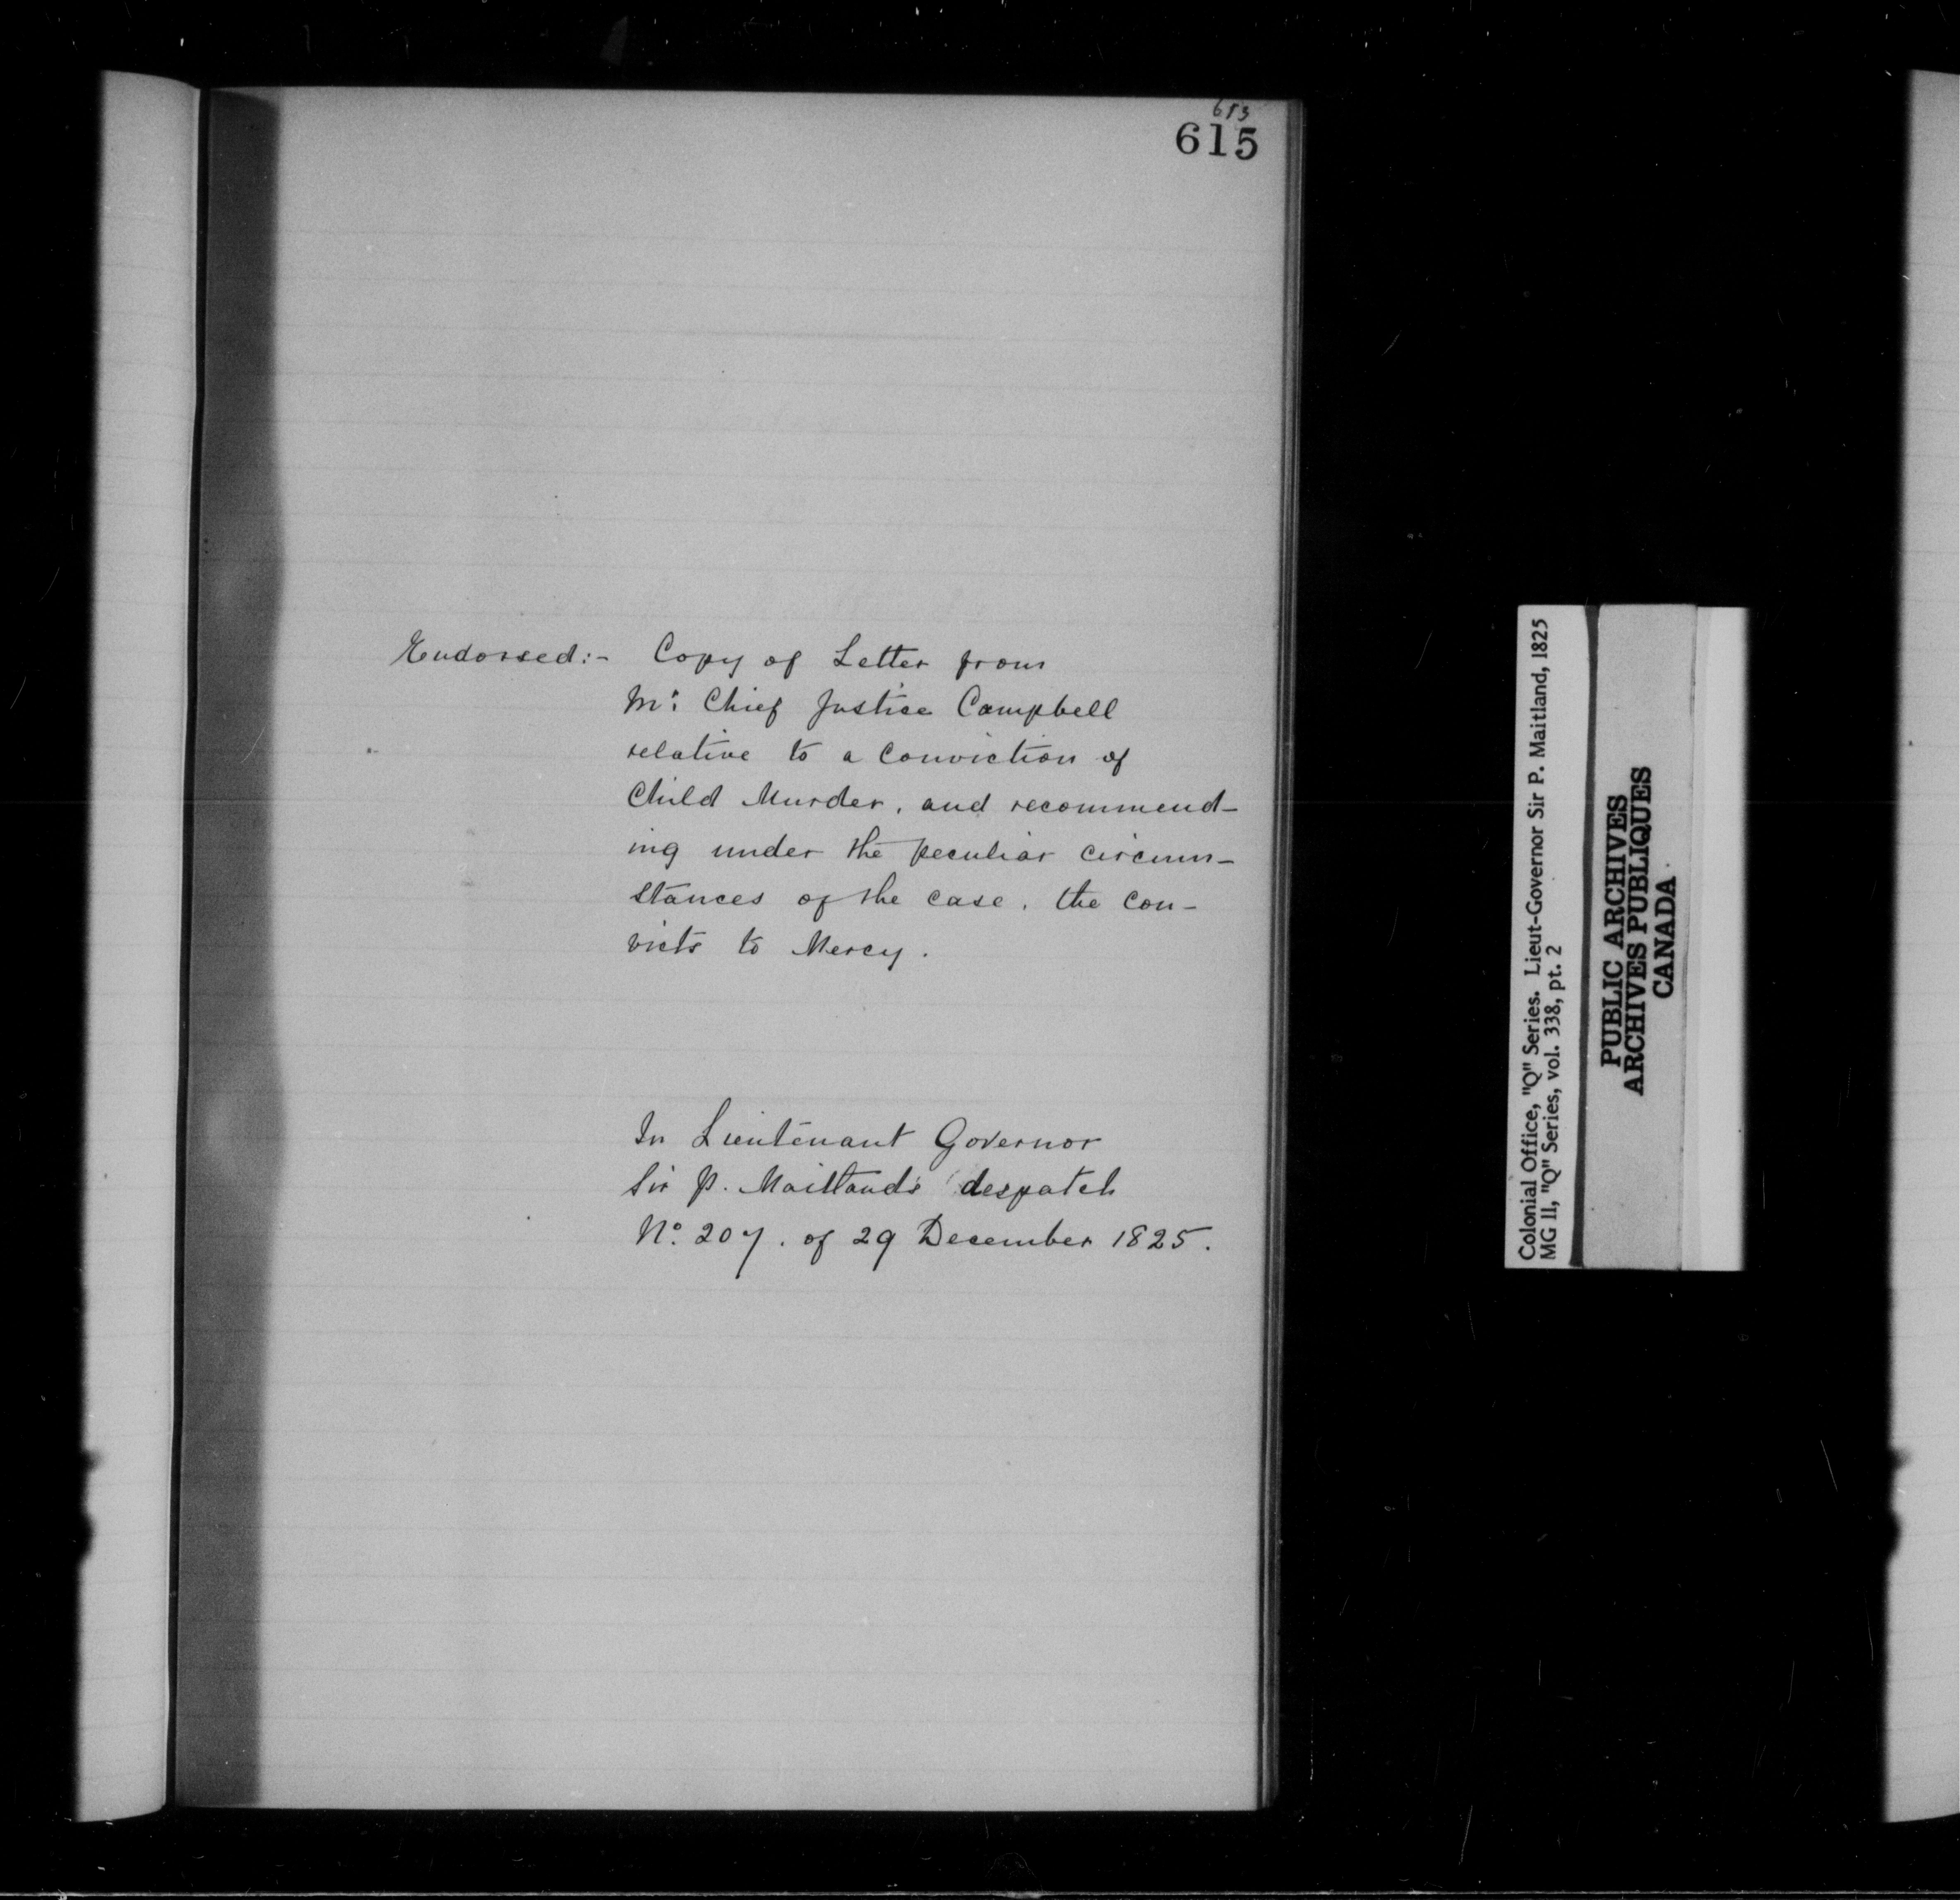 613
615
Endorsed:- Copy of Letter from
Mr. Chief Justice Campbell
relative to a Conviction of
Child Murder, and recommend-
ing under the peculiar circum-
stances of the case, the con-
victs to Mercy.
In Lieutenant Governor
Sir P. Maitland's despatch
No. 207. of 29 December 1825.
Colonial Office, "Q" Series. Lieut-Governor Sir P. Maitland, 1825
MG 11, "Q" Series, vol. 338, pt. 2
PUBLIC ARCHIVES
ARCHIVES PUBLIQUES
CANADA